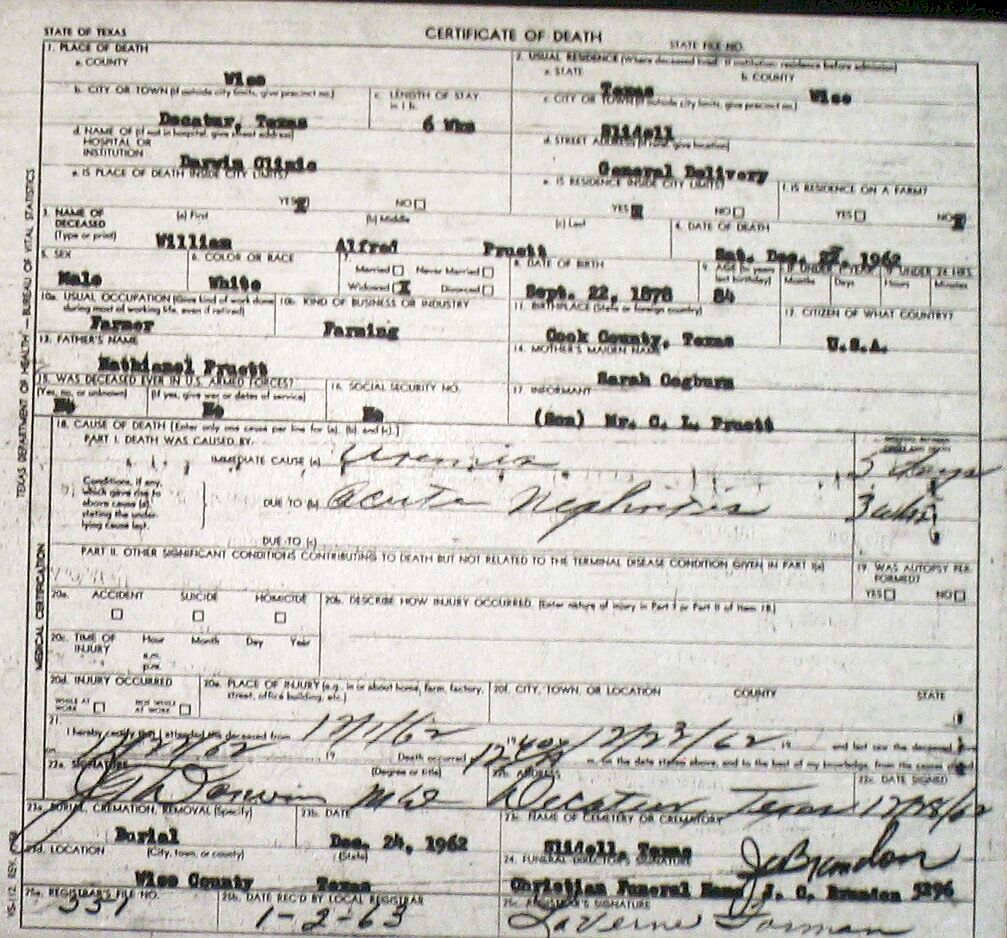 STATE OF TEXAS
CERTIFICATE OF DEATH
STATE FILE NO.
1. PLACE OF DEATH
a. COUNTY
Wise
2. USUAL RESIDENCE (Where deceased lived. If institution: residence before admission)
a. STATE
Texas
b. COUNTY
Wise
b. CITY OR TOWN (If outside city limits, give precinct no.)
Decatur, Texas
c. LENGTH OF STAY
in 1 b.
6 Wks
c. CITY OR TOWN (If outside city limits, give precinct no.)
Slidell
d. NAME OF (If not in hospital, give street address)
HOSPITAL OR
INSTITUTION
Darwin Clinic
d. STREET ADDRESS (If rural, give location)
General Delivery
e. IS PLACE OF DEATH INSIDE CITY LIMITS?
YES X NO
e. IS RESIDENCE INSIDE CITY LIMITS?
YES X NO
f. IS RESIDENCE ON A FARM?
YES NO X
3. NAME OF
DECEASED
(Type or print)
(a) First
William
(b) Middle
Alfred
(c) Last
Pruett
4. DATE OF DEATH
Sat. Dec. 1962
5. SEX
Male
6. COLOR OR RACE
White
7.
Married Never Married
Widowed X Divorced
8. DATE OF BIRTH
Sept. 22, 1878
9. AGE (In years
last birthday)
84
IF UNDER 1 YEAR
Months Days
IF UNDER 24 HRS.
Hours Minutes
10a. USUAL OCCUPATION (Give kind of work done
during most of working life, even if retired)
Farmer
10b. KIND OF BUSINESS OR INDUSTRY
Farming
11. BIRTHPLACE (State or foreign country)
Cook County, Texas
12. CITIZEN OF WHAT COUNTRY?
U.S.A.
13. FATHER'S NAME
Nathianel Pruett
14. MOTHER'S MAIDEN NAME
Sarah Cogburn
15. WAS DECEASED EVER IN U.S. ARMED FORCES?
(Yes, no, or unknown)
No
(If yes, give war or dates of service)
No
16. SOCIAL SECURITY NO.
No
17. INFORMANT
(Son) Mr. C. L. Pruett
18. CAUSE OF DEATH [Enter only one cause per line for (a), (b), and (c).]
PART I. DEATH WAS CAUSED BY:
IMMEDIATE CAUSE (a) Uremia
5 days
Conditions, if any,
which gave rise to
above cause (a),
stating the under-
lying cause last.
DUE TO (b) Acute Nephritis
3 wks
DUE TO (c)
PART II. OTHER SIGNIFICANT CONDITIONS CONTRIBUTING TO DEATH BUT NOT RELATED TO THE TERMINAL DISEASE CONDITION GIVEN IN PART I(a)
19. WAS AUTOPSY PER-
FORMED?
YES NO
20a. ACCIDENT SUICIDE HOMICIDE
20b. DESCRIBE HOW INJURY OCCURRED. (Enter nature of injury in Part I or Part II of item 18.)
20c. TIME OF
INJURY
Hour Month Day Year
a.m.
p.m.
20d. INJURY OCCURRED
WHILE AT
WORK
NOT WHILE
AT WORK
20e. PLACE OF INJURY (e.g., in or about home, farm, factory,
street, office building, etc.)
20f. CITY, TOWN, OR LOCATION COUNTY STATE
21.
I hereby certify that I attended the deceased from 12/1/62 19 12/23/62 19 and last saw the deceased
on 19 Death occurred m. on the date stated above, and to the best of my knowledge, from the causes stated
22a. SIGNATURE
(Degree or title)
Darwin MD
22b. ADDRESS
Decatur Texas
22c. DATE SIGNED
12/28/62
23a. BURIAL, CREMATION, REMOVAL (Specify)
Burial
23b. DATE
Dec. 24, 1962
23c. NAME OF CEMETERY OR CREMATORY
Slidell, Texas
23d. LOCATION
(City, town, or county)
(State)
Wise County Texas
24. FUNERAL DIRECTOR'S SIGNATURE
J C Brandon
Christian Funeral Home J. C. Brandon 5296
25a. REGISTRAR'S FILE NO.
331
25b. DATE REC'D BY LOCAL REGISTRAR
1-2-63
25c. REGISTRAR'S SIGNATURE
LaVerne Forman
TEXAS DEPARTMENT OF HEALTH — BUREAU OF VITAL STATISTICS
MEDICAL CERTIFICATION
VS-112 REV.